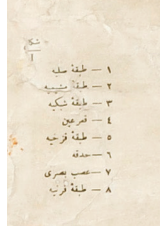 شکل
١
١ — طبقهٔ صلبه
٢ — طبقهٔ مشیمیه
٣ — طبقهٔ شبکیه
٤ — قعر عین
٥ — طبقهٔ قزحیه
٦ — حدقه
٧ — عصب بصری
٨ — طبقهٔ قرنیه